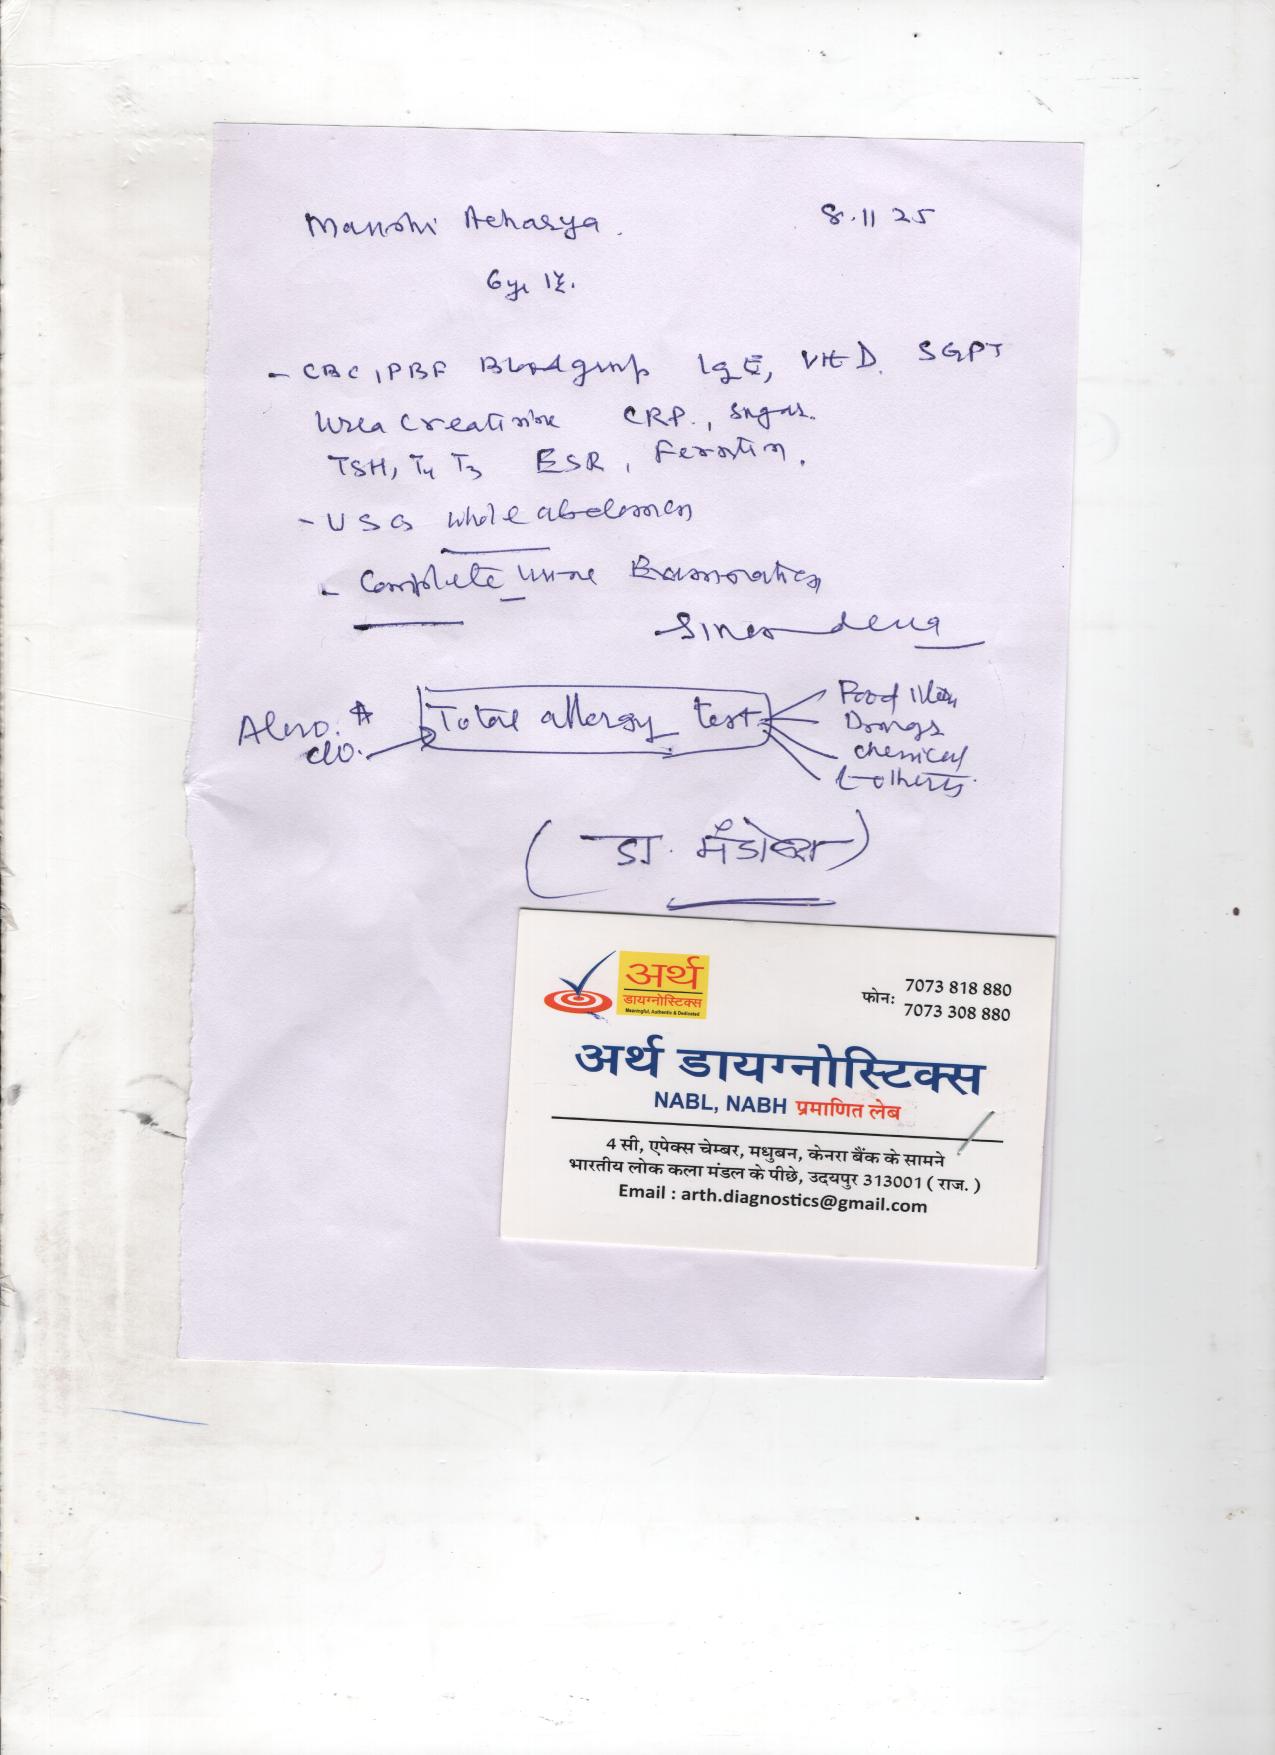 Manshi Acharya. 8.11 25
6yr
- CBC, PBF Bloodgroup IgE, Vit D. SGPT
Urea Creatinine CRP., Sugar.
TSH, T4 T3 ESR, Ferritin.
- USG whole abdomen
- Complete Urine Examination
Also.
do.
Total allergy test
Food
Drugs
chemical
others
(डा.
अर्थ
डायग्नोस्टिक्स
Meaningful, Authentic & Dedicated
फोन: 7073 818 880
7073 308 880
अर्थ डायग्नोस्टिक्स
NABL, NABH प्रमाणित लेब
4 सी, एपेक्स चेम्बर, मधुबन, केनरा बैंक के सामने
भारतीय लोक कला मंडल के पीछे, उदयपुर 313001 ( राज. )
Email : arth.diagnostics@gmail.com